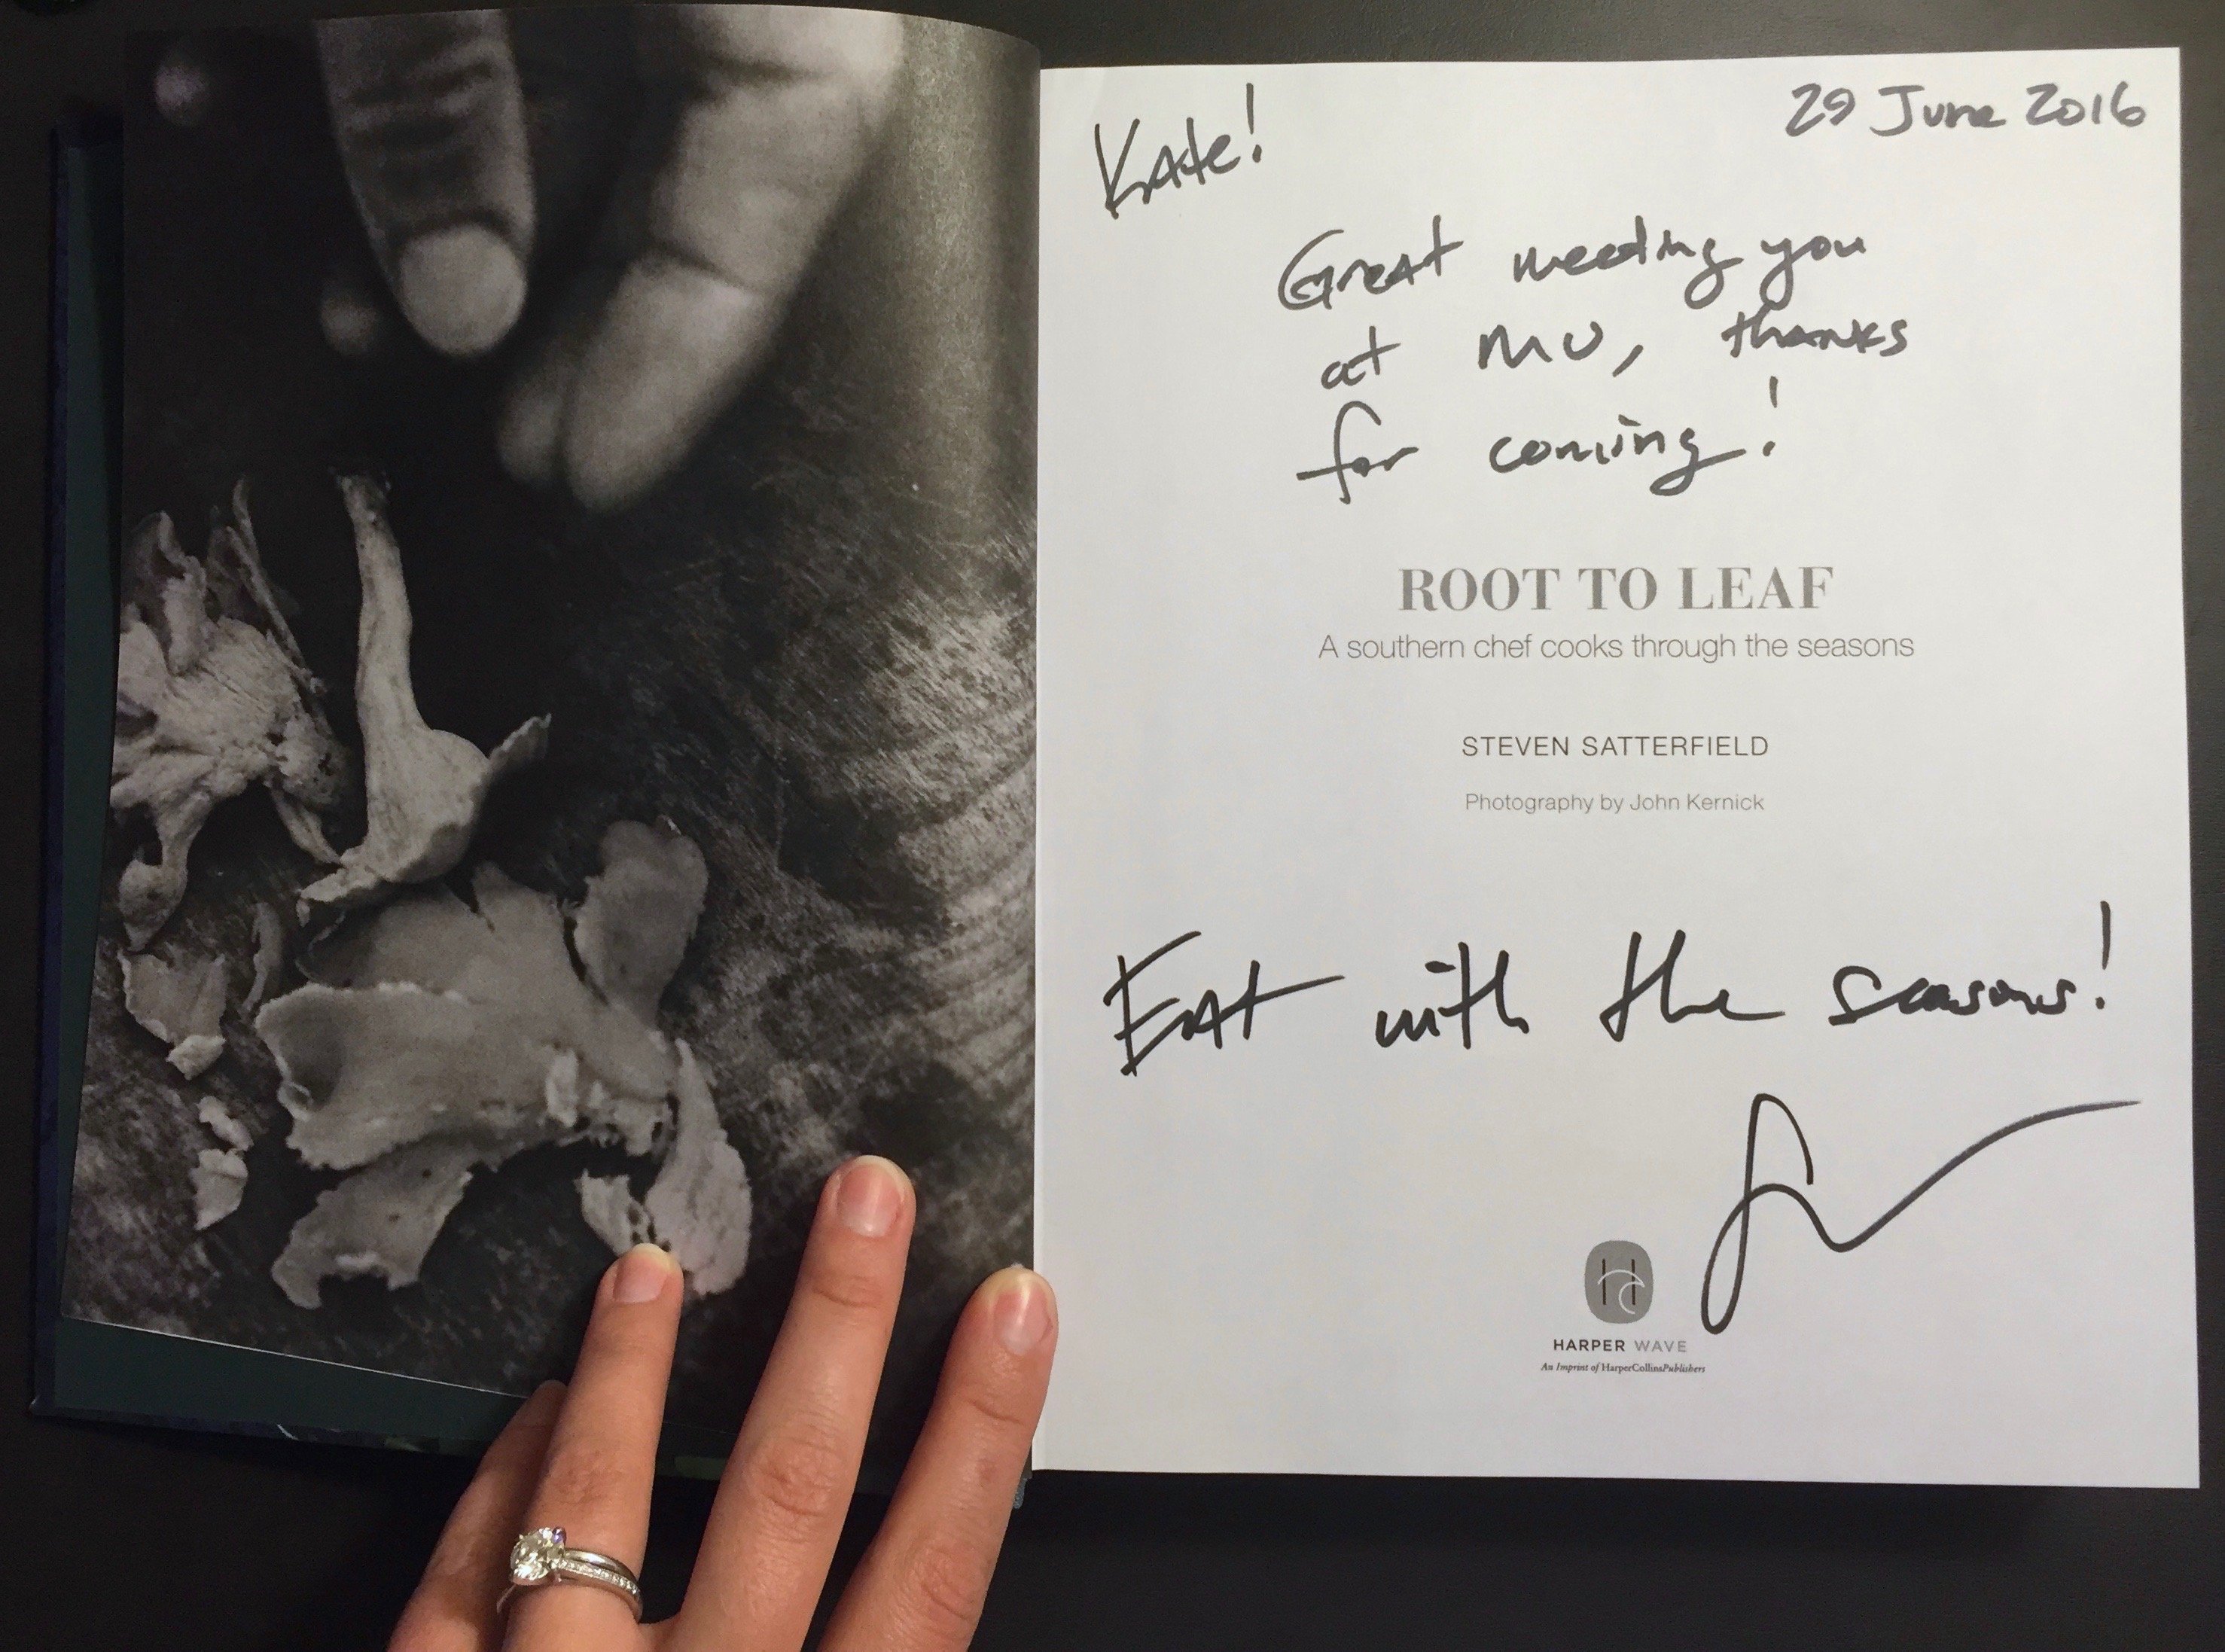 29 June 2016
Kate!
Great meeting you
at MU, thanks
for coming!
ROOT TO LEAF
A southern chef cooks through the seasons
STEVEN SATTERFIELD
Photography by John Kernick
Eat with the seasons!
HARPER WAVE
An Imprint of HarperCollinsPublishers